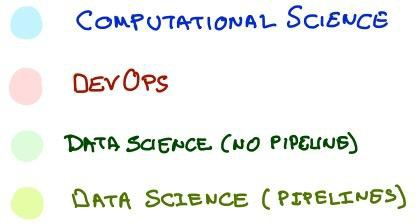 COMPUTATIONAL SCIENCE
DEVOPS
DATA SCIENCE (NO PIPELINE)
DATA SCIENCE (PIPELINES)